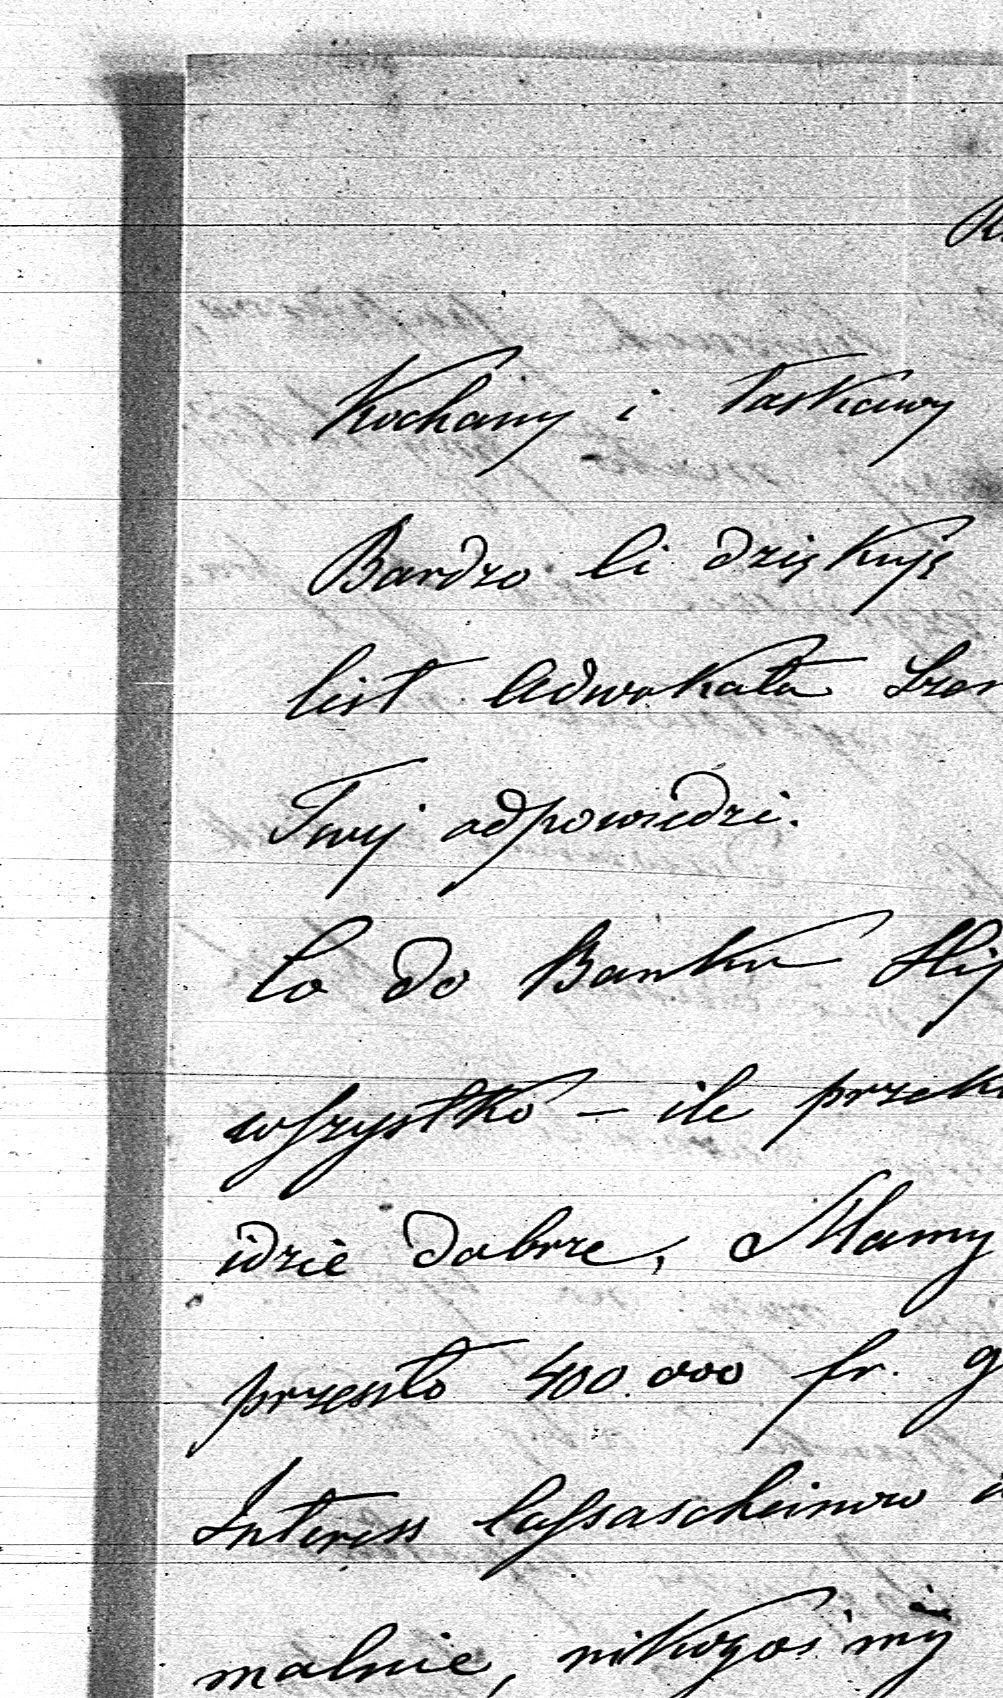 Kochany i łaskawy
Bardzo Ci dziękuję
list Adwokata
Twej odpowiedzi.
Co do Banku
wszystko – ile
idzie dobrze, Mamy
przeszło 400.000 fr.
Interess Cassascheinow
malnie, my